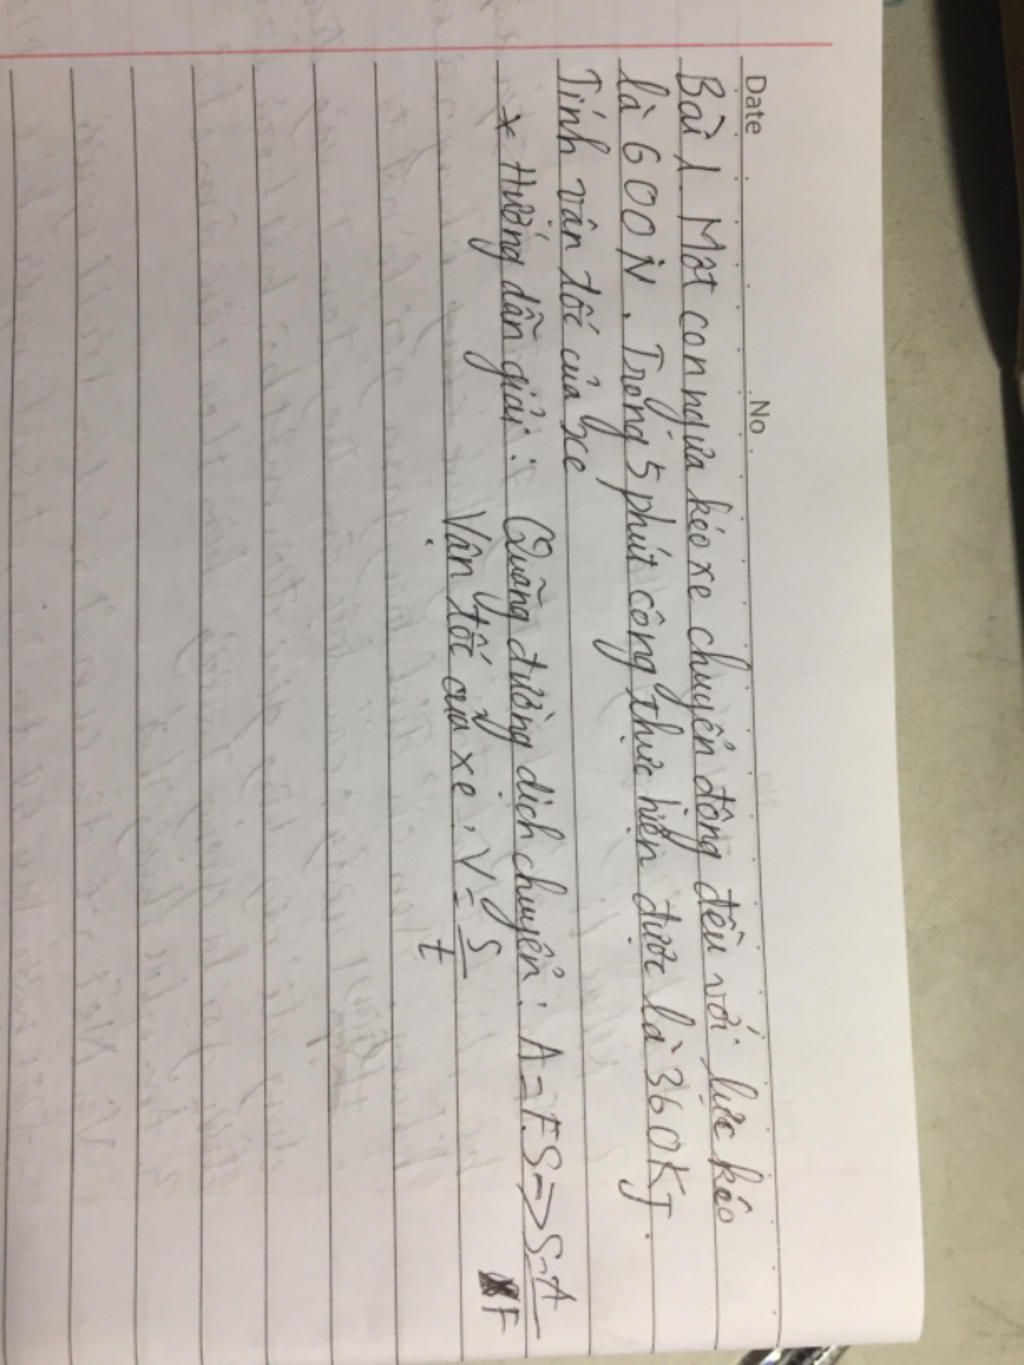 Date No
Bài 1. Một con ngựa kéo xe chuyển động đều với lực kéo
là 600N. Trong 5 phút công thực hiện được là 360KJ.
Tính vận tốc của xe
* Hướng dẫn giải: Quãng đường dịch chuyển: A = F.S => S = A/F
Vận tốc của xe: V = S/t